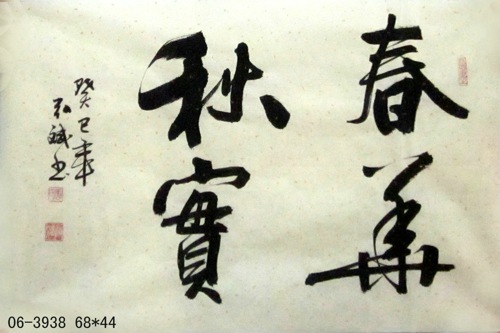 春華
秋實
癸巳年
弘斌書
06-3938 68*44